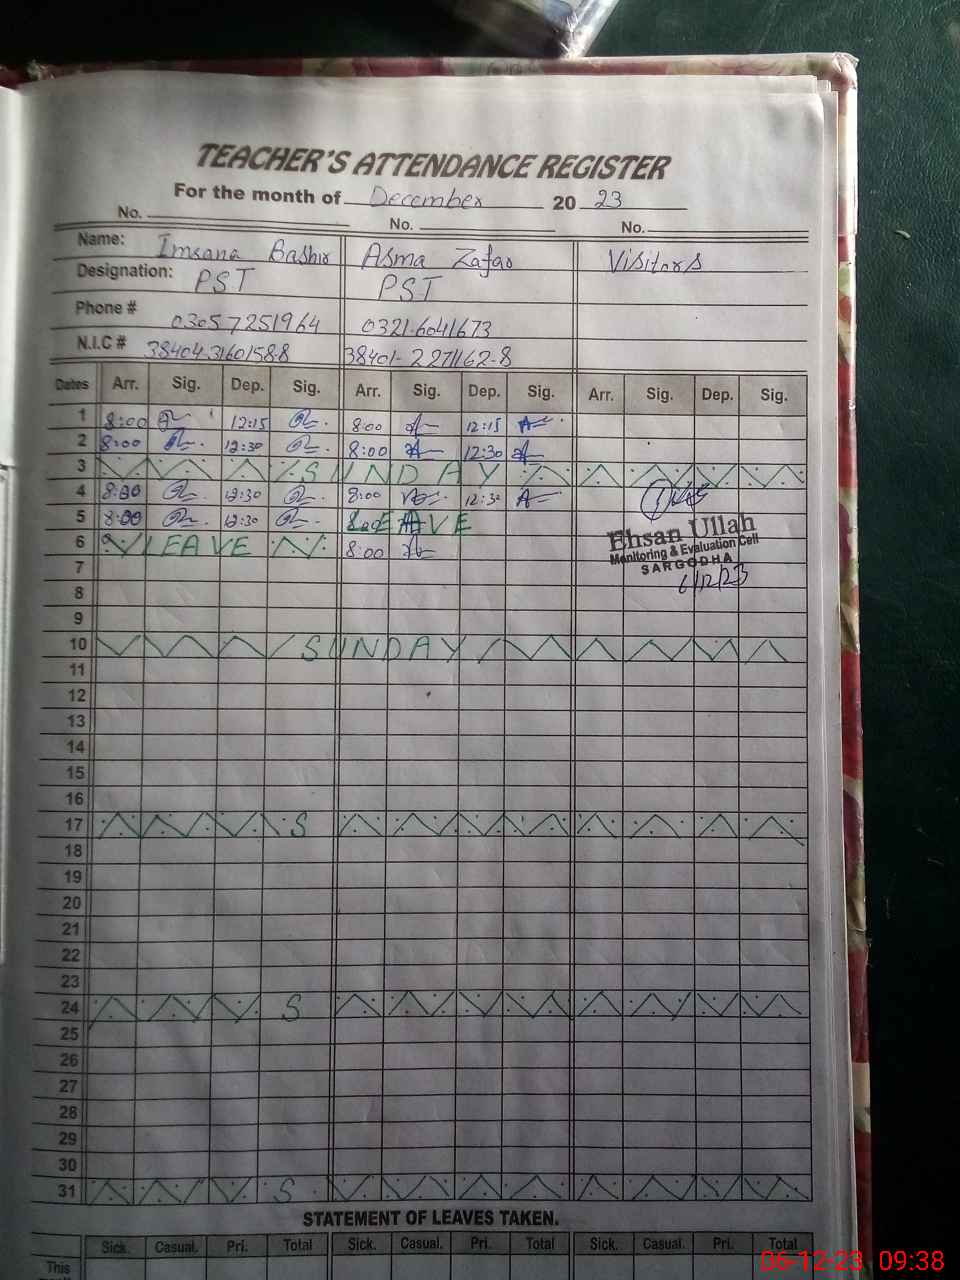 TEACHER'S ATTENDANCE REGISTER
For the month of December 2023
No. No. No.
Name: Imrana Bashir Asma Zafar Visitors
Designation: PST PST
Phone # 03057251964 0321-6041673
N.I.C # 38404-3160158-8 38401-2271162-8
Dates Arr. Sig. Dep. Sig. Arr. Sig. Dep. Sig. Arr. Sig. Dep. Sig.
1 8:00 12:15 8:00 12:15
2 8:00 12:30 8:00 12:30
3 SUNDAY
4 8:00 12:30 8:00 12:30
5 8:00 12:30 LEAVE
Ehsan Ullah
6 LEAVE 8:00
Monitoring & Evaluation Cell
SARGODHA
6/12/23
7
8
9
10 SUNDAY
11
12
13
14
15
16
17 S
18
19
20
21
22
23
24 S
25
26
27
28
29
30
31 S
STATEMENT OF LEAVES TAKEN.
Sick. Casual. Pri. Total Sick. Casual. Pri. Total Sick. Casual. Pri. Total
This
06-12-23 09:38